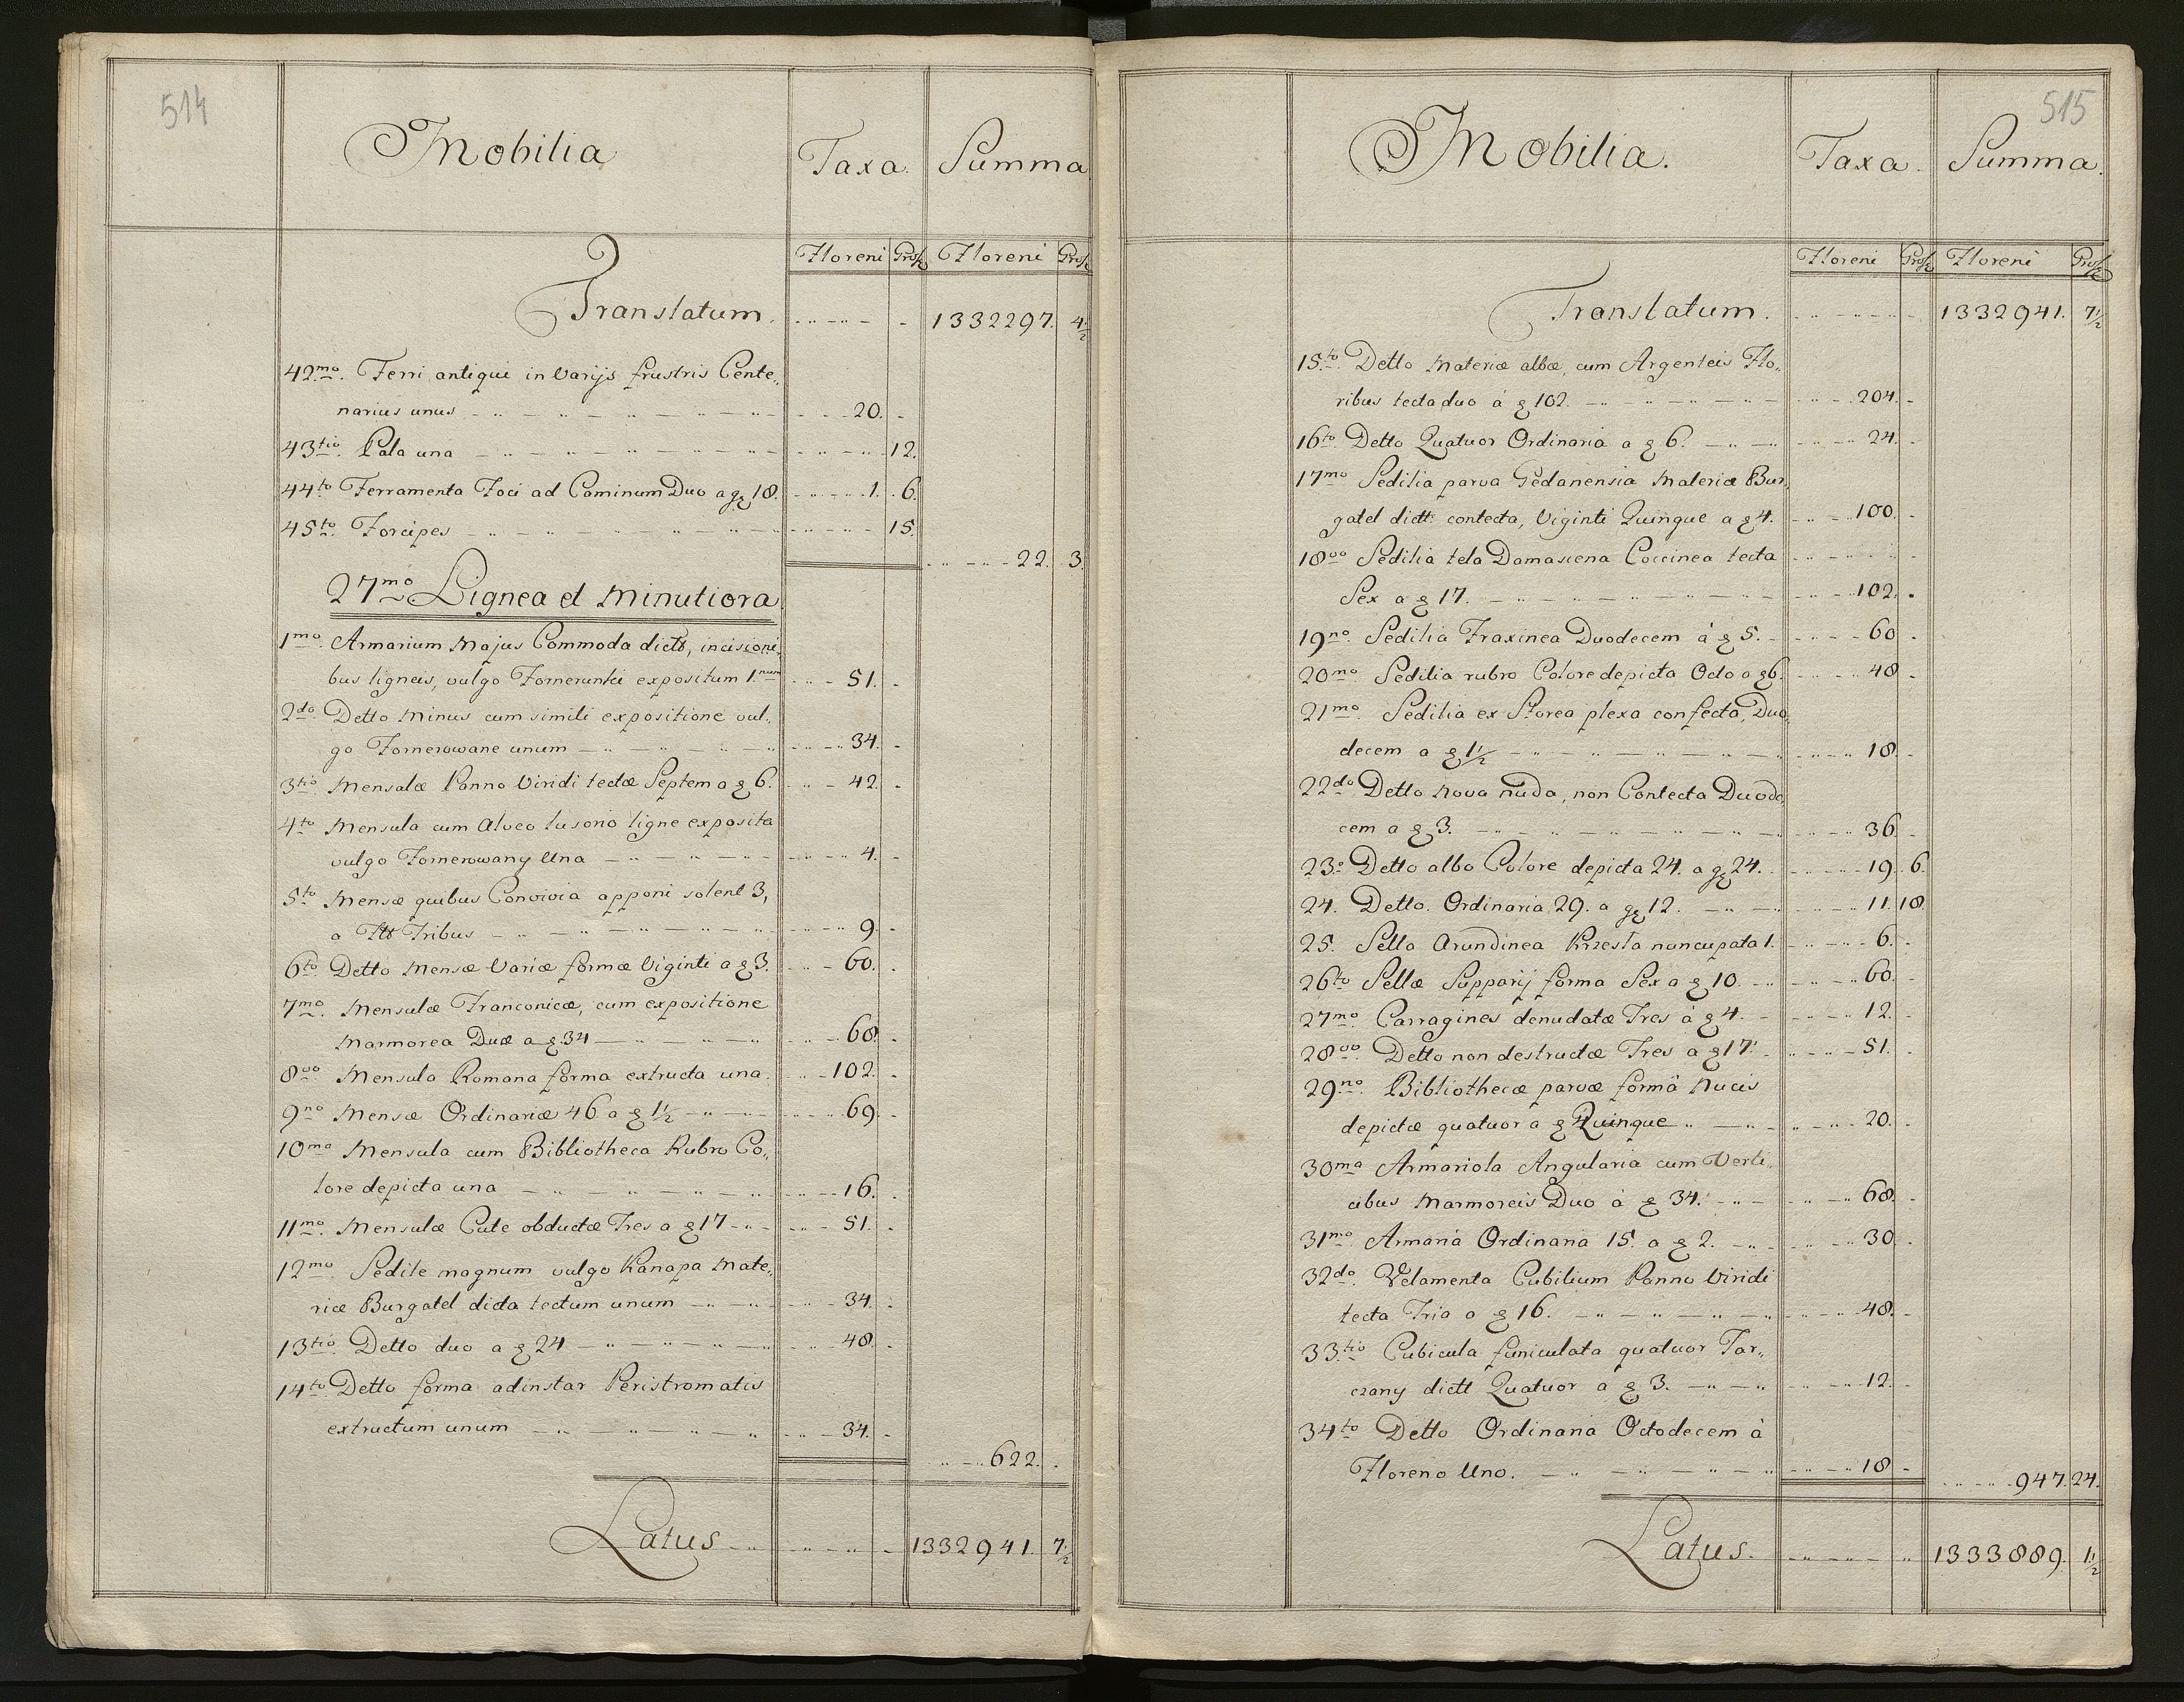 514
Mobilia
Taxa. Summa
Floreni Gross Floreni Gross
Translatum. 1332297. 4½
42mo. Ferri antiqui in varijs frustris Cente„
narius unus 20.
43tio. Pala una 12.
44to Ferramenta Foci ad Caminum Duo a gz 18. 1. 6.
45to. Forcipes 15.
22. 3.
27mo Lignea et Minutiora
1mo. Armarium Majus Commoda dictt, incisioni„
bus ligneis, vulgo Fornerunki expositum 1.num 51.
2do. Detto Minus cum simili expositione vul„
go Fornerowane unum 34.
3tio Mensulæ Panno Viridi tectæ Septem a f 6. 42.
4to Mensula cum Alveo lusorio ligne exposita
vulgo Fornerowany Una 4.
5to Mensæ quibus Convivia apponi solent 3,
a Ftt Tribus 9.
6to Detto Mensæ Variæ formæ Viginti a f 3. 60.
7mo. Mensulæ Franconicæ, cum expositione
Marmorea Duæ a f. 34 68.
8vo Mensula Romana forma extructa una. 102.
9no Mensæ Ordinariæ 46 a f 1½ 69.
10mo Mensula cum Bibliotheca Rubro Co„
lore depicta una 16.
11mo. Mensulæ Cute obductæ Tres a f 17 51.
12mo. Sedile magnum vulgo Kanapa Mate„
riæ Burgatel dicta tectum unum 34.
13tio. Detto duo a f 24 48.
14to Detto forma adinstar Peristromatis
extructum unum 34.
622.
Latus 1332941. 7½
515
Mobilia.
Taxa. Summa.
Floreni Gross Floreni Gross
Translatum. 1332941. 7½
15to. Detto Materiæ albæ, cum Argenteis Flo„
ribus tecta duo á f 102. 204.
16to Detto Quatuor Ordinaria a f 6. 24.
17mo Sedilia parva Gedanensia Materiæ Bur„
gatel dictt. contecta, Viginti Quinque a f 4. 100.
18vo Sedilia tela Damascena Coccinea tecta
Sex a f 17. 102.
19no. Sedilia Fraxinea Duodecem á f 5. 60
20mo. Sedilia rubro Colore depicta Octo a f 6. 48
21mo. Sedilia ex Storea plexa confecta, Duo„
decem a f 1½ 18.
22do Detto Nova nuda, non Contecta Duode„
cem a f 3. 36
23o Detto albo Colore depicta 24. a gz 24. 19. 6.
24. Detto. Ordinaria 29. a gz 12. 11. 18.
25. Sella Arundinea Krzesła nuncupata 1. 6.
26to Sellæ Supparij forma Sex a f 10. 60.
27mo. Carragines denudatæ Tres á f 4. 12.
28vo. Detto non destructæ Tres a f 17. 51.
29no. Bibliothecæ parvæ formâ Nucis
depictæ quatuor a f Quinque 20.
30mo Armariola Angularia cum Verti„
cibus Marmoreis Duo á f 34. 68.
31mo. Armaria Ordinaria 15. a f 2. 30.
32do. Velamenta Cubilium Panno Viridi
tecta Tria a f 16. 48.
33tio Cubicula funiculata quatuor Tar„
czany dictt Quatuor a f 3. 12.
34to Detto Ordinaria Octodecem á
Floreno Uno. 18
947. 24.
Latus. 1333889. 1½